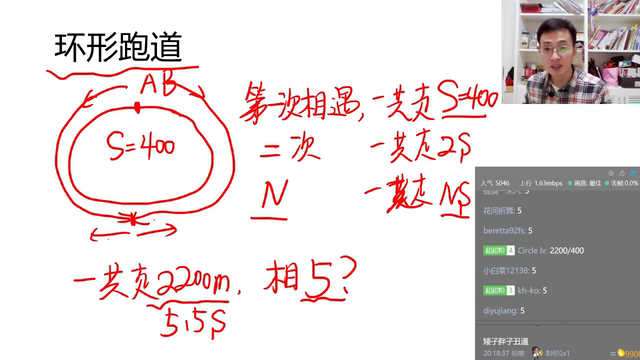 环形跑道
A B
S=400
第一次相遇,一共走S=400
二次 一共走2S
N 一共走NS
一共走2200m,相5?
5.5S
人气 5046 上行 1.63mbps 画质: 最佳 丢帧 0.0%
花间折舞: 5
beretta92fs: 5
4 Circle lv: 2200/400
小白菜12138: 5
3 kh-ko: 5
diyujiang: 5
矮子胖子丑逼
20:18:37 投喂